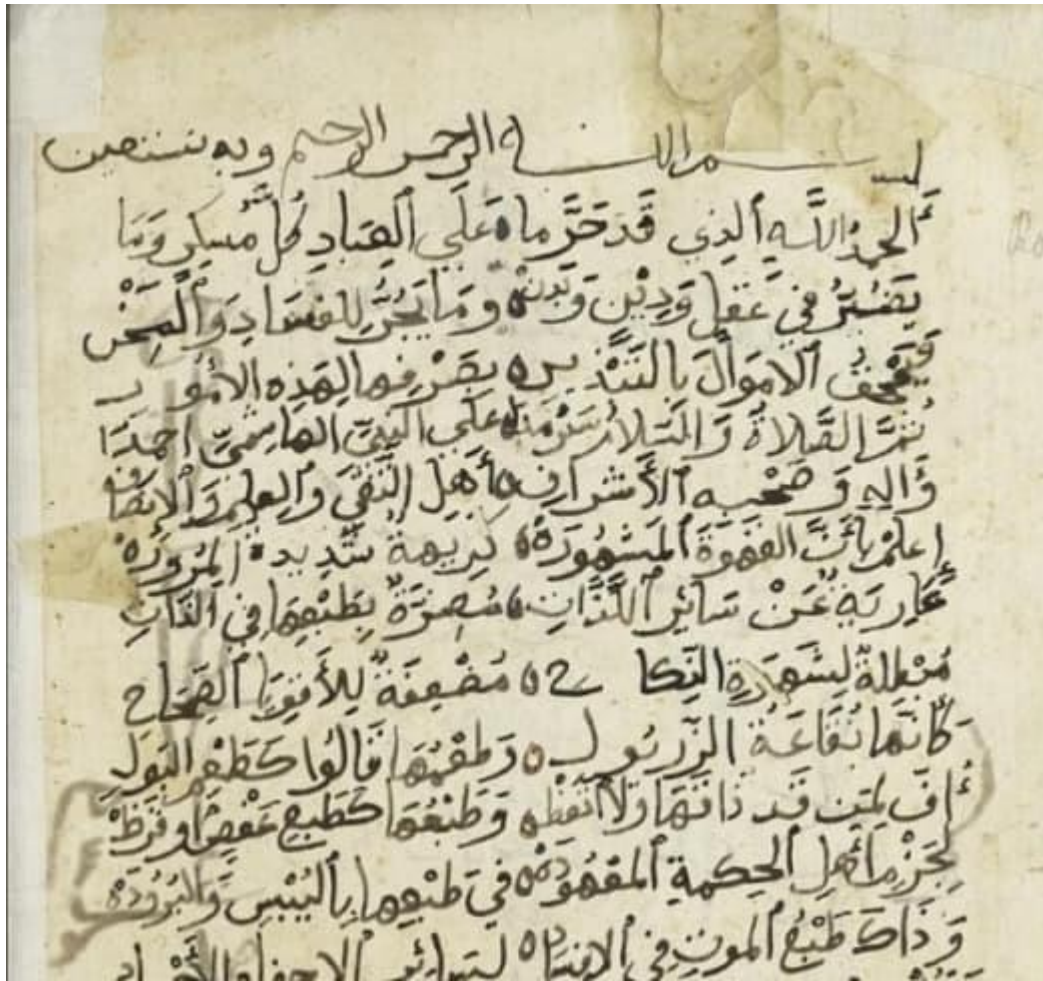 بسم الله الرحمن الرحيم وبه نستعين
أَلحمدُ اللَّهِ ٱلذِي قَدْ حَرَّمَا ه عَلَي ٱلعِبادِ كُلَّ مُسكِرٍ وَمَا
يَضُرُّ فِي عَقلٍ وَدِيْنٍ وَبَدن ه وَمَا يَجُرُّ لِلفسَادِ وَٱلمِحَنْ
وَيُمْحِقُ ٱلامَوالَ بِالتَّبْذِيرِ ه بِصَرْفِها لِهَذِه الأمُورِ
ثُمَّ الصَّلاةُ وَالسَّلامُ سَرْمَدَا ه عَلَي ٱلنَّبِيِّ الهَاشِمِيِّ احمدَا
وَآلِهِ وَصَحْبِهِ ٱلأَشرافِ ه أَهلِ التُّقَي وَٱلعِلمِ وَٱلإنصَافِ
إعلَمْ بِأَنَّ القَهوَةَ ٱلمَشهُورَة ه كَرِيهةٌ شَدِيدةُ المُرُورَهْ
عَارِيَةٌ عَنْ سَائِرِ ٱللَّذَّاتِ ه مُضِرَّةٌ بِطَبْعِهَا فِي الذَّاتِ
مُبْطِلةٌ لِشَهوَةِ النِّكاح ه مُضْعِفَةٌ لِلأَقوِيَا ٱلصِّحَاح
كَأَنَّهَا نُقَاعَةُ الزَّربُولِ ه وَطَعْمُهَا قَالُوا كَطَعْمِ البَولِ
أُفٍّ لِمَن قَد ذَاقَهَا وَلاَ ٱتَّعَظ ه وَطَبْعُهَا كَطَبعِ عَفْصٍ أو قَرَظْ
لِجَزْمِ أَهلِ ٱلحِكمةِ ٱلمَعْهُودَه ه فِي طَبْعِها بِٱليُبْسِ وَٱلبُرُودَهْ
وَذَاكَ طَبْعُ ٱلموتِ فِي الافسَاد ه لسَائِرِ